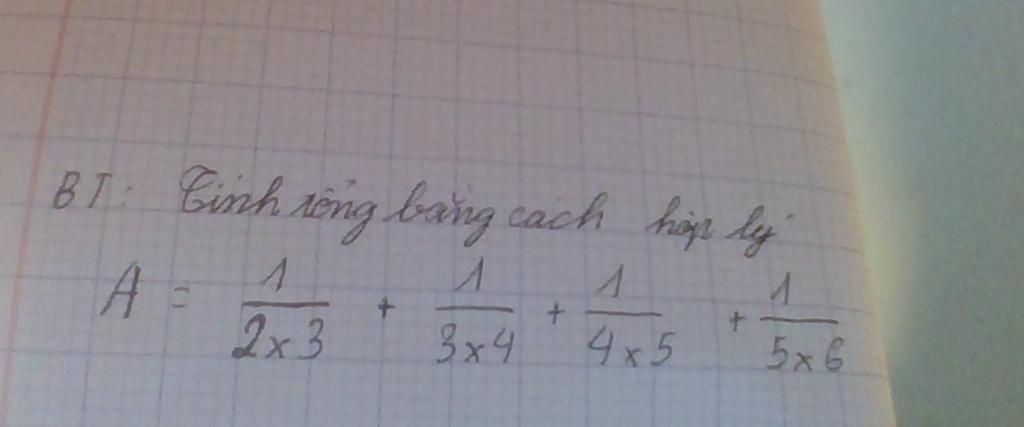 BT: Tính tổng bằng cách hợp lý
A = 1/2x3 + 1/3x4 + 1/4x5 + 1/5x6